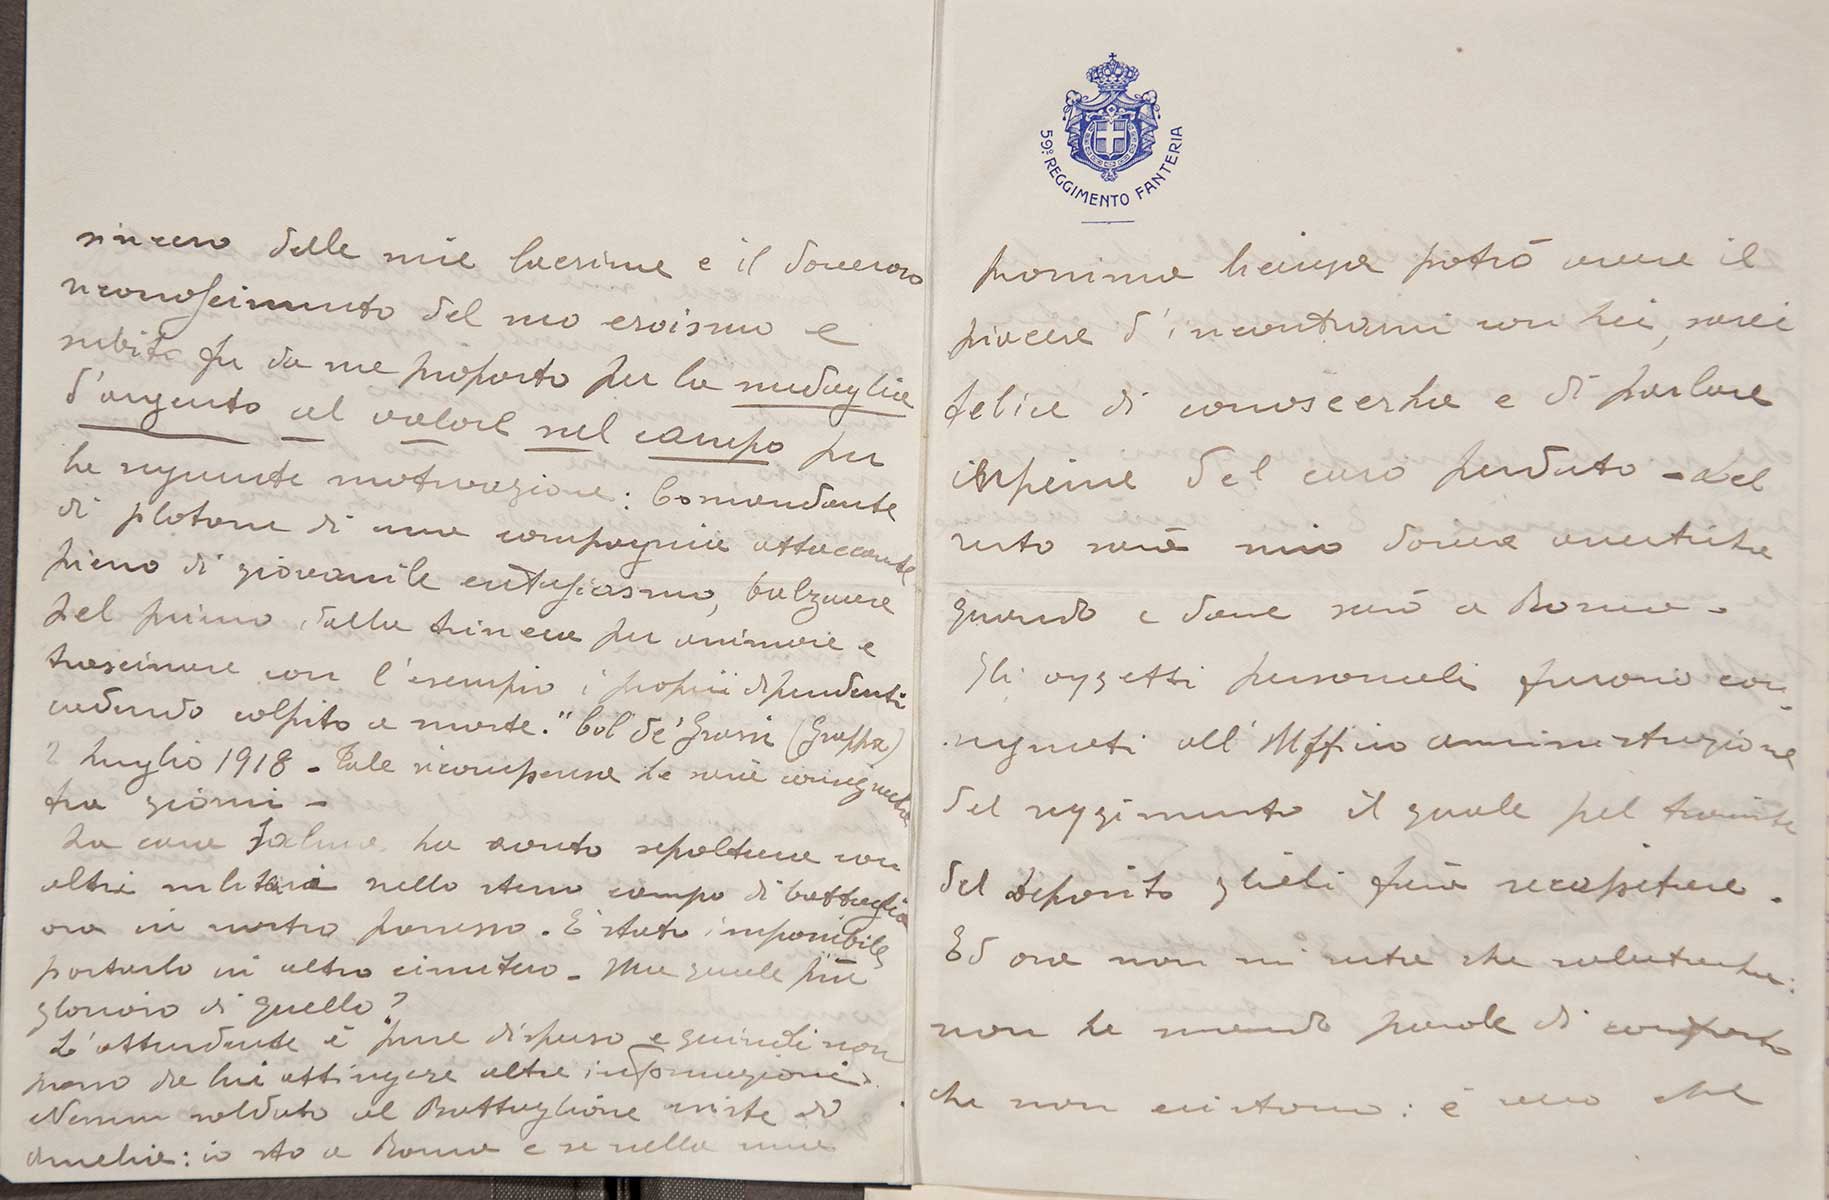 sincero delle mie lacrime e il doveroso
riconoscimento del suo eroismo e
subito fu da me proposto per la medaglia
d'argento al valore sul campo per
la seguente motivazione: Comandante
di plotone di una compagnia attaccante
pieno di giovanile entusiasmo, balzava
pel primo dalla trincea per animare e
trascinare con l'esempio i propri dipendenti
cadendo colpito a morte." Col de' Grassi (Grappa)
2 luglio 1918 - Tale ricompensa le sarà consegnata
tra giorni -
La cara salma ha avuto sepoltura con
altri militari nello stesso campo di battaglia
ora in nostro possesso. È stato impossibile
portarlo in altro cimitero - Ma quale più
glorioso di quello?
L'attendente è pure disperso e quindi non
posso da lui attingere altre informazioni.
Nessun soldato al Battaglione esiste di
Amelia: io sto a Roma e se nella mia
59º REGGIMENTO FANTERIA
prossima licenza potrò avere il
piacere d'incontrarmi con Lei, sarei
felice di conoscerla e di parlare
insieme del caro perduto - Del
resto sarà mio dovere avvertirla
quando e dove sarò a Roma -
Gli oggetti personali furono con-
segnati all'Ufficio amministrazione
del reggimento il quale pel tramite
del deposito glieli farà recapitare.
Ed ora non mi resta che salutarla:
non le mando parole di conforto
che non esistono: è vero che